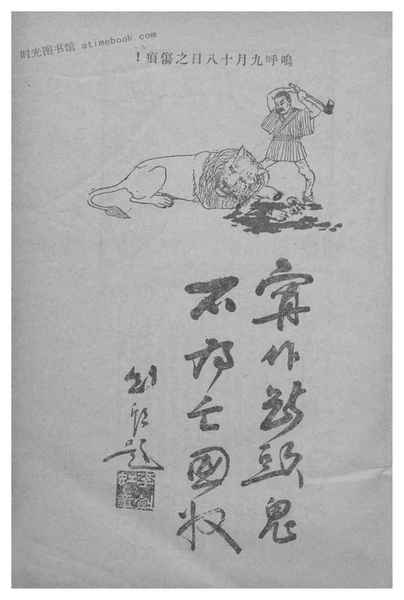 时光图书馆 atimebook.com
嗚呼九月十八日之傷痕！
寧作斷頭鬼
不為亡國奴
題